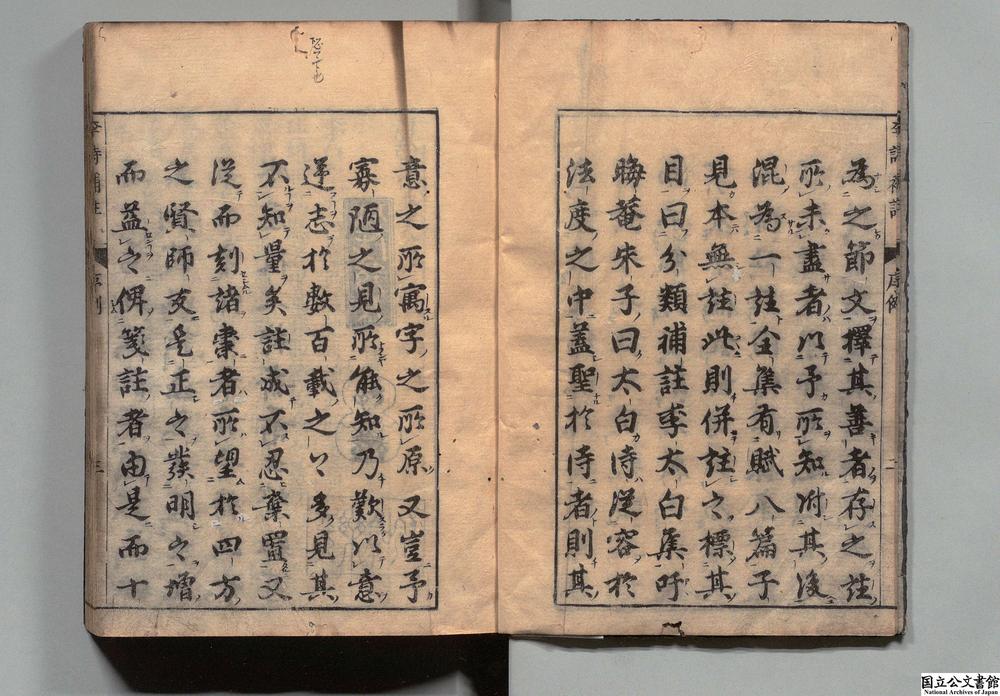 為之節文擇其善者存之註
所未盡者以予所知附其後
混為一註全集有賦八篇子
見本無註此則併註之標其
目曰分類補註李太白集吁
晦菴朱子曰太白詩從容於
法度之中蓋聖於詩者則其
意之所寓字之所原又豈予
寡陋之見所能知乃欲以意
逆志於數百載之上多見其
不知量矣註成不忍棄置又
從而刻諸棗者所望於四方
之賢師友是正之發明之增
而益之俾箋註者由是而十
李詩補註
序例
二
李詩補註
序例
三
国立公文書館
National Archives of Japan